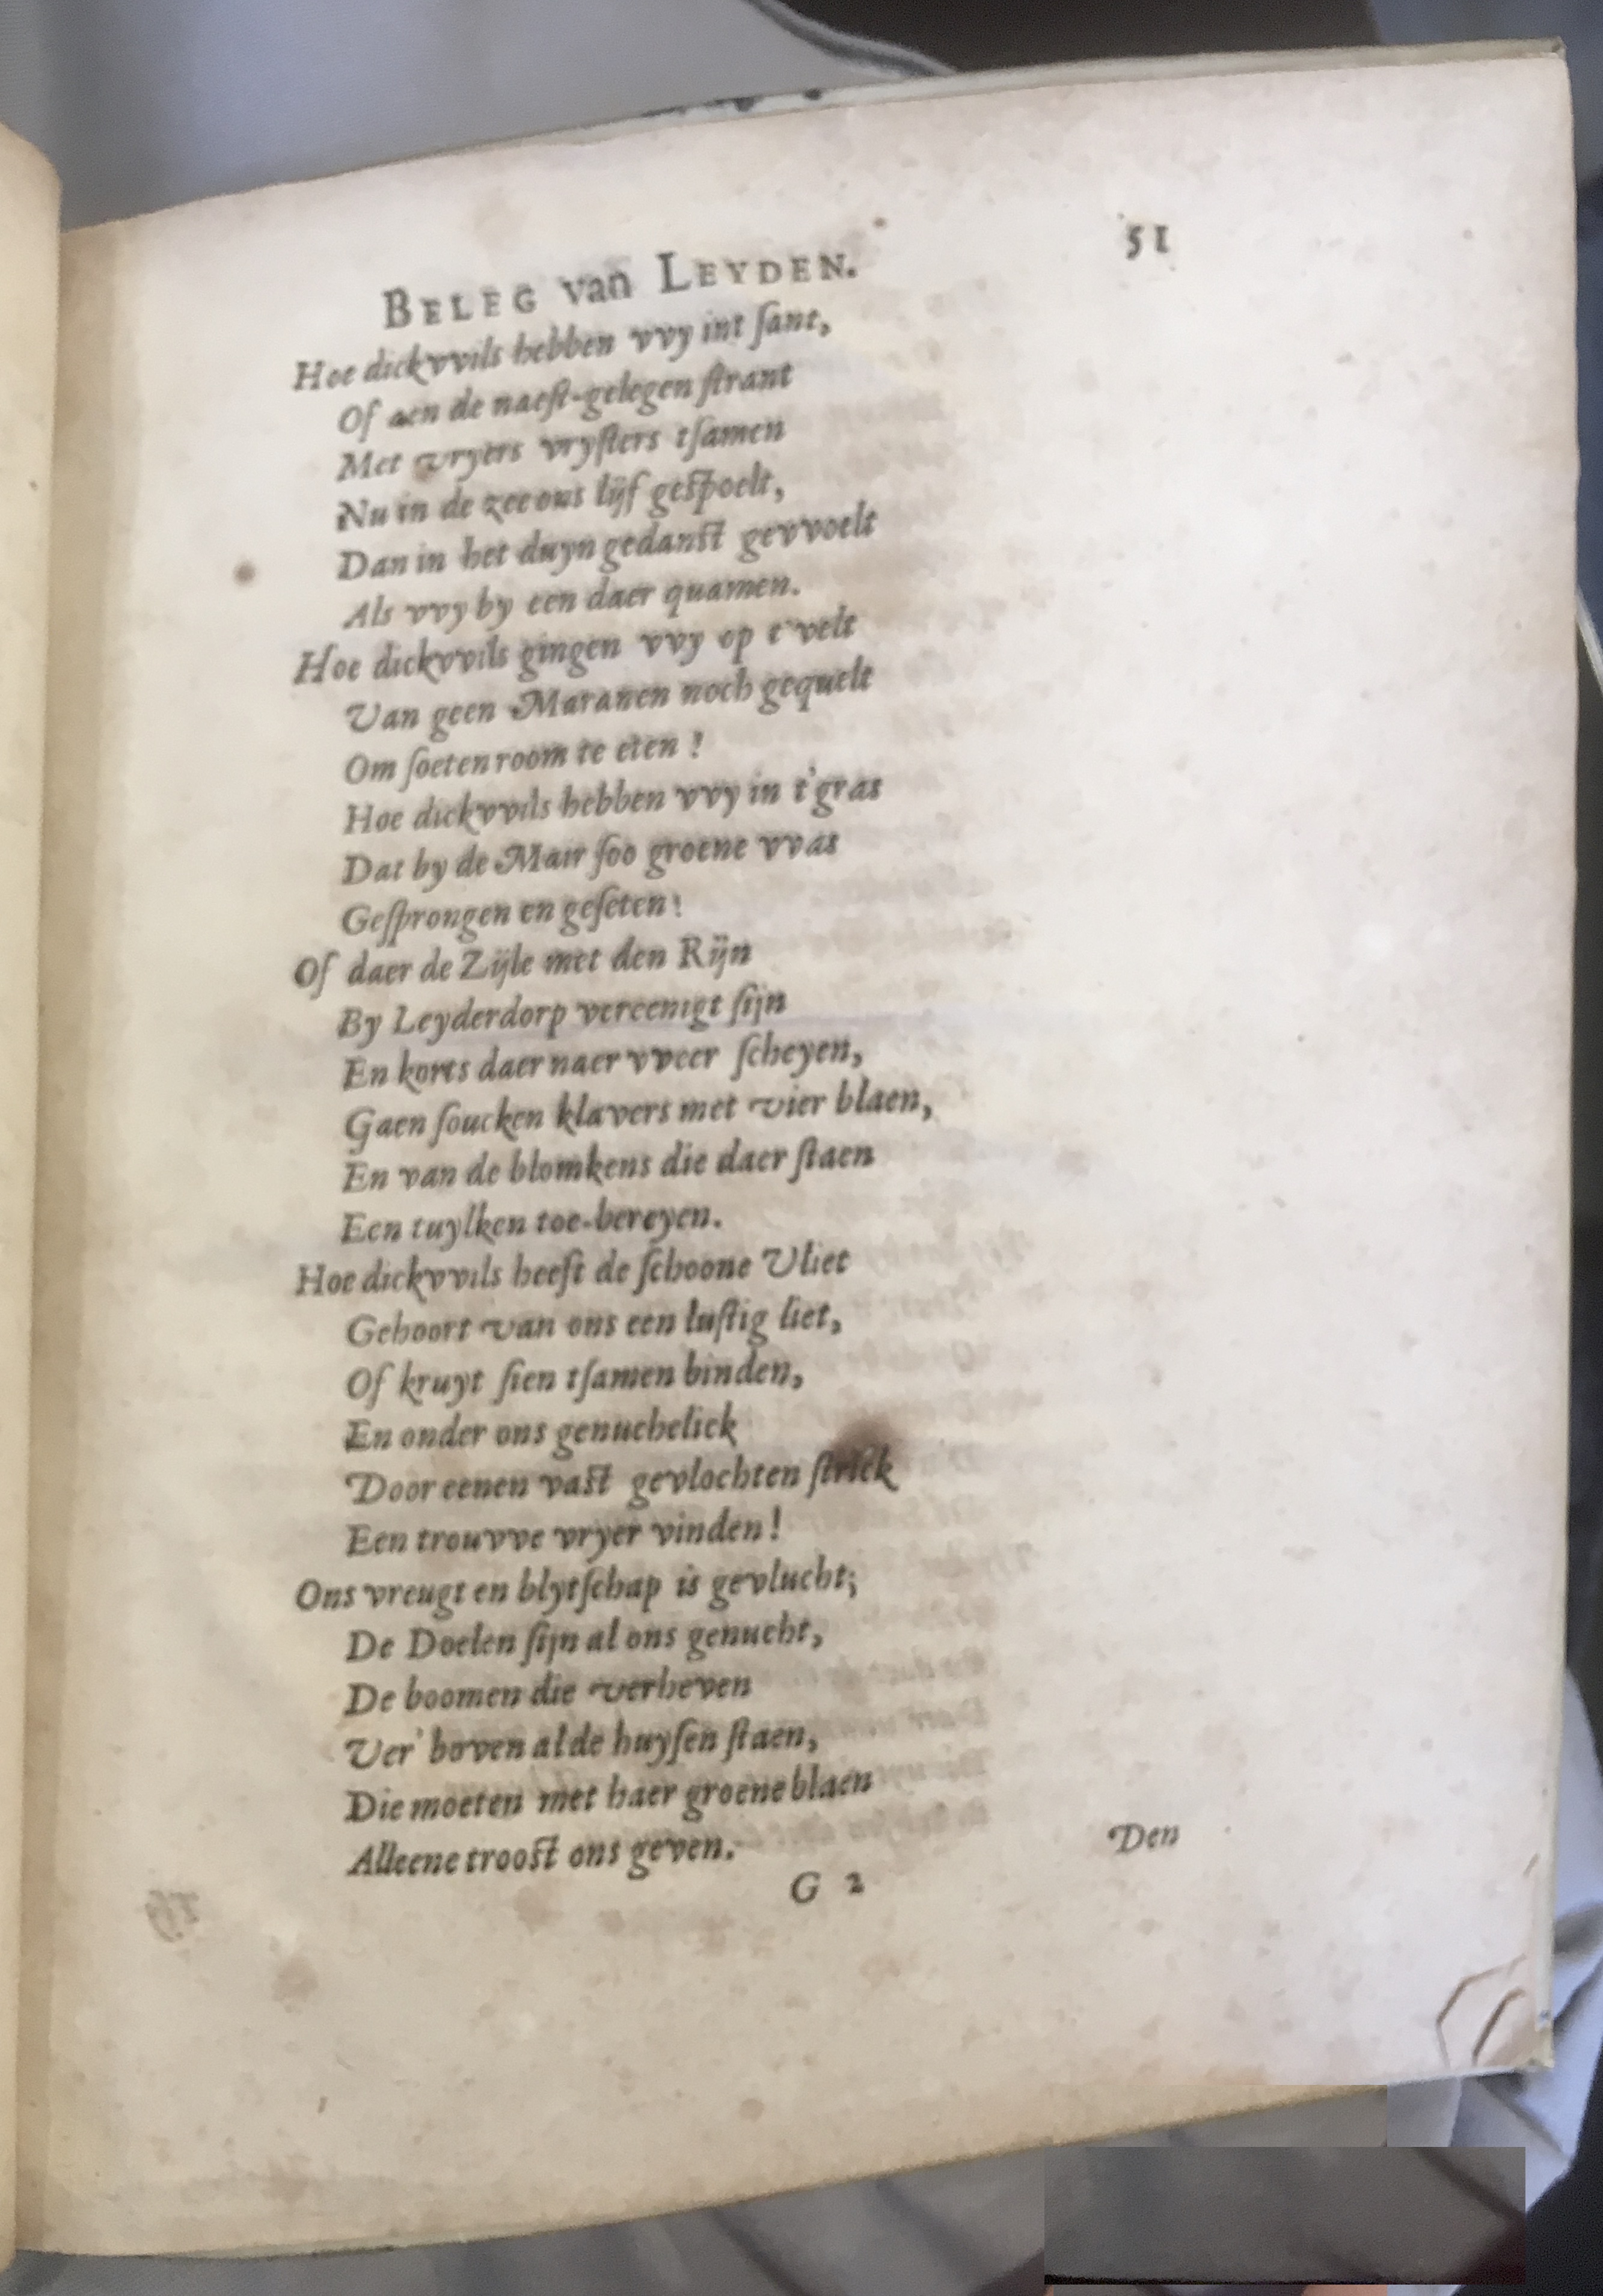 BELEG van LEYDEN. 51
Hoe dickvvils hebben vvy int ſant,
Of aen de naeſt-gelegen ſtrant
Met vryers vryſters tſamen
Nu in de zee ons lijf geſpoelt,
Dan in het duyn gedanſt gevvoelt
Als vvy by een daer quamen.
Hoe dickvvils gingen vvy op t'velt
Van geen Maranen noch gequelt
Om ſoeten room te eten!
Hoe dickvvils hebben vvy in t'gras
Dat by de Mair ſoo groene vvas
Geſprongen en geſeten!
Of daer de Zijle met den Rijn
By Leyderdorp vereenigt ſijn
En korts daer naer vveer ſcheyen,
Gaen ſoucken klavers met vier blaen,
En van de blomkens die daer ſtaen
Een tuylken toe-bereyen.
Hoe dickvvils heeft de ſchoone Vliet
Gehoort van ons een luſtig liet,
Of kruyt ſien tſamen binden,
En onder ons genuchelick
Door eenen vaſt gevlochten ſtrick
Een trouvve vryer vinden!
Ons vreugt en blytſchap is gevlucht;
De Doelen ſijn al ons genucht,
De boomen die verheven
Ver' boven al de huyſen ſtaen,
Die moeten met haer groene blaen
Alleene trooſt ons geven.
G 2 Den